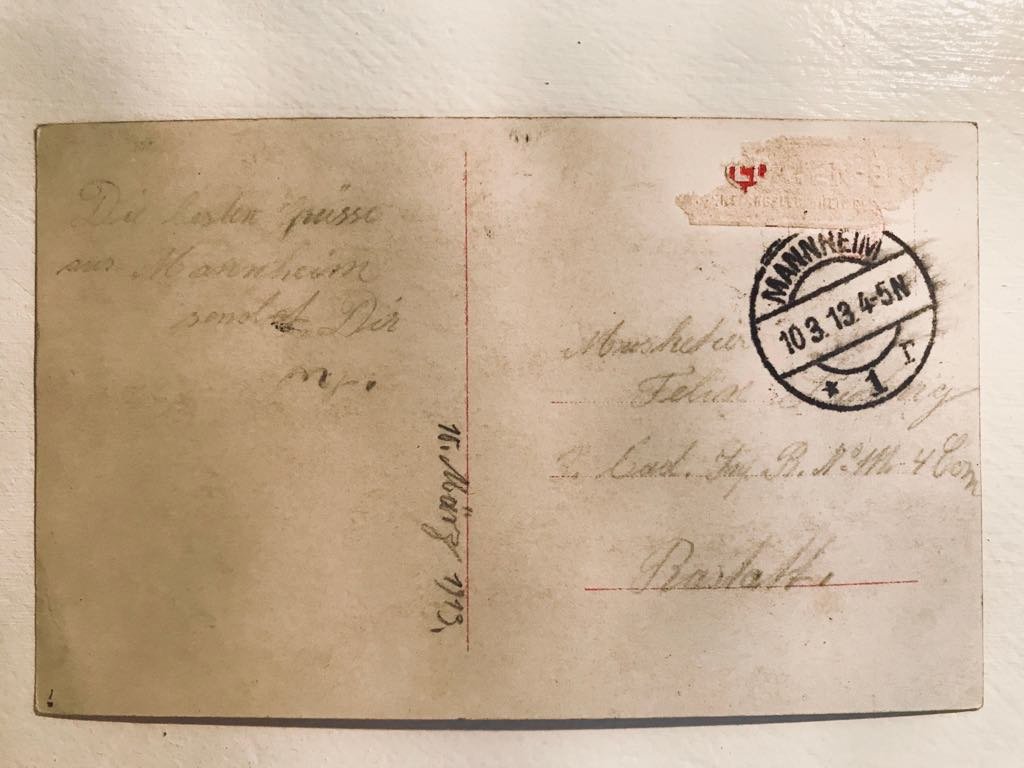 Die besten grüsse
aus Mannheim
sendet Dir
16. März 1913,
MANNHEIM
10.3.13.4-5N
* 1 r
Musketier
Felix
Bad. Inf. R. No 111 4 Com
Rastatt.